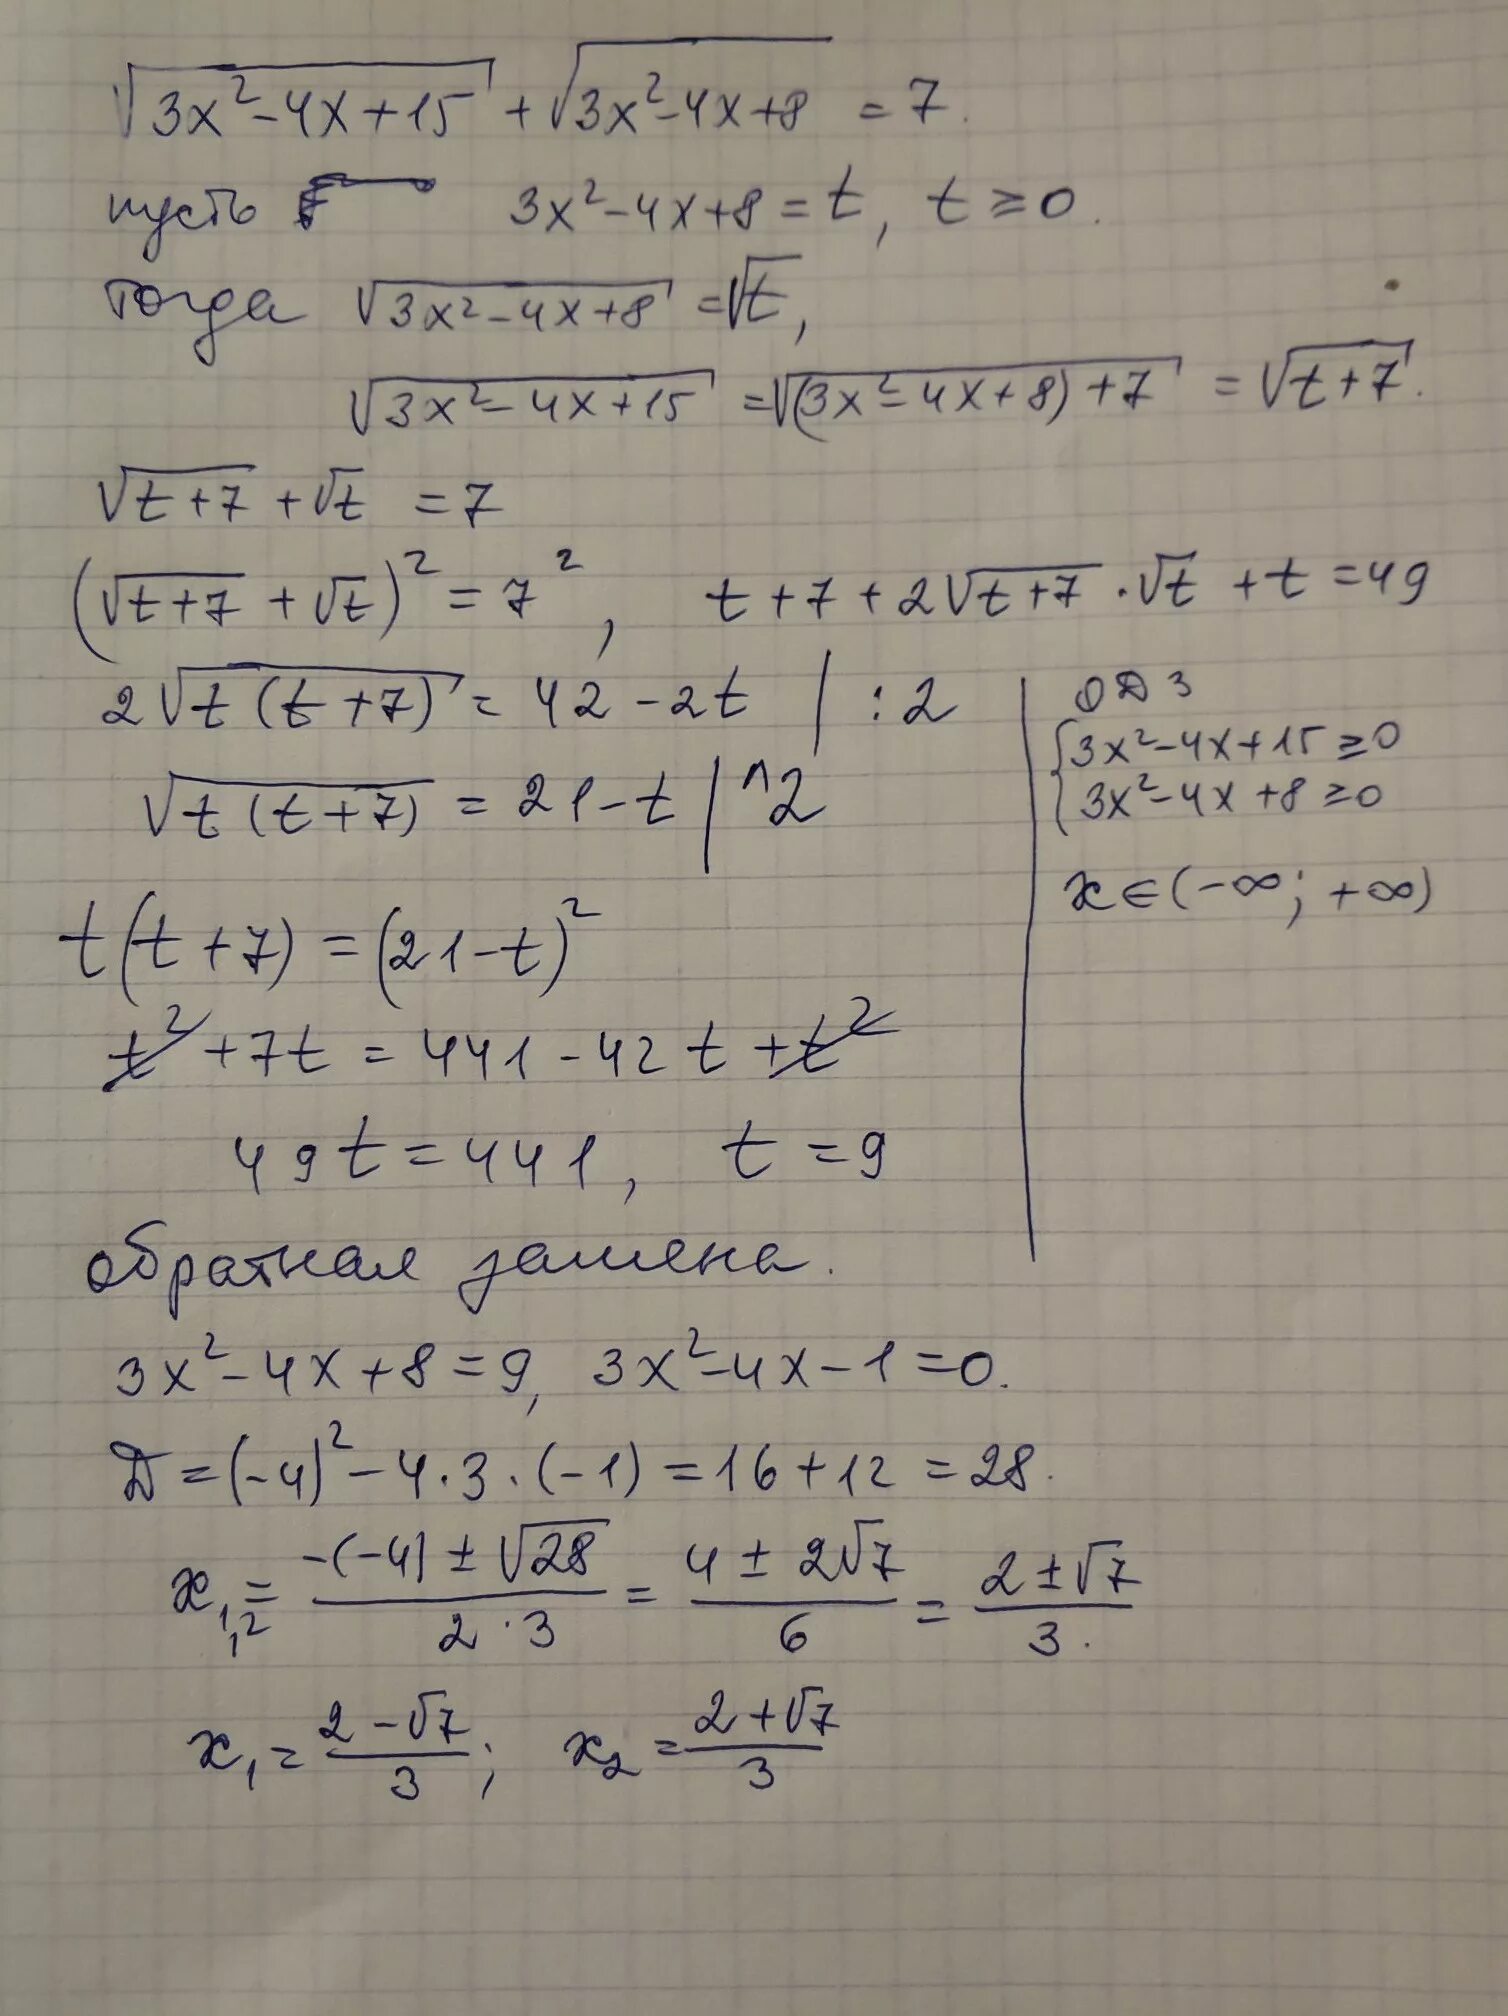 √(3x²-4x+15) + √(3x²-4x+8) = 7.
пусть 3x²-4x+8 = t, t ≥ 0.
тогда √(3x²-4x+8) = √t,
√(3x²-4x+15) = √((3x²-4x+8)+7) = √(t+7).
√(t+7) + √t = 7
(√(t+7) + √t)² = 7², t+7+2√(t+7)·√t + t = 49
2√(t(t+7)) = 42-2t | :2
√(t(t+7)) = 21-t | ^2
t(t+7) = (21-t)²
t² + 7t = 441 - 42t + t²
49t = 441, t = 9
ОДЗ
{3x²-4x+15 ≥ 0
3x²-4x+8 ≥ 0
x ∈ (-∞; +∞)
обратная замена.
3x²-4x+8 = 9, 3x²-4x-1 = 0.
D = (-4)² - 4·3·(-1) = 16+12 = 28.
x₁,₂ = (-(-4) ± √28)/(2·3) = (4 ± 2√7)/6 = (2 ± √7)/3.
x₁ = (2-√7)/3; x₂ = (2+√7)/3